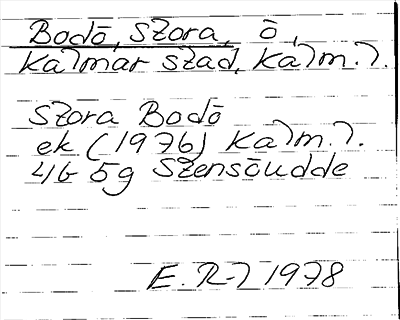 Bodö, Stora, ö,
Kalmar stad, Kalm. l.
Stora Bodö
ek (1976) Kalm. l.
4G 5g Stensöudde
E. R-l 1978